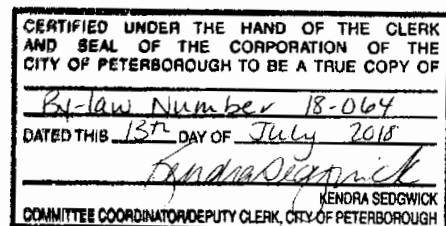 CERTIFIED UNDER THE HAND OF THE CLERK
AND SEAL OF THE CORPORATION OF THE
CITY OF PETERBOROUGH TO BE A TRUE COPY OF
By-law Number 18-064
DATED THIS 13th DAY OF July 2018
Kendra Sedgwick
KENDRA SEDGWICK
COMMITTEE COORDINATOR/DEPUTY CLERK, CITY OF PETERBOROUGH